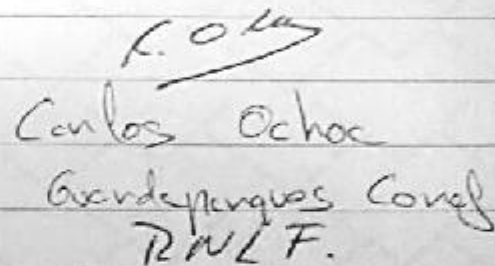 Carlos Ochoa
Guardaparques Conaf
RNLF.